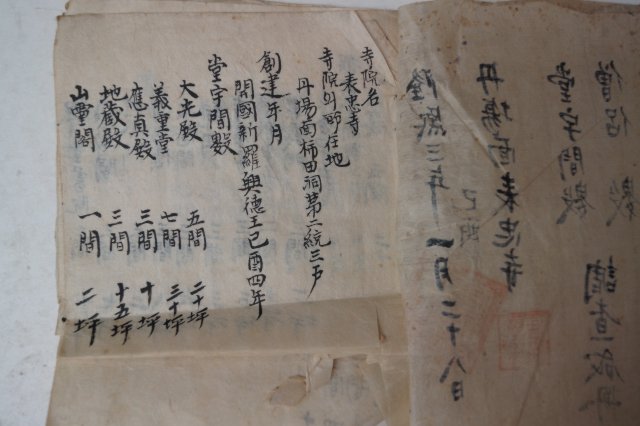 堂宇間數
丹場面表忠寺
隆熙三年 一月二十八日
寺院名
表忠寺
寺院의所在地
丹場面柿田洞第二統三戶
創建年月
開國新羅興德王己酉四年
堂宇間數
大光殿 五間 二十坪
義重堂 七間 三十坪
應真殿 三間 十坪
地藏殿 三間 十五坪
山靈閣 一間 二坪